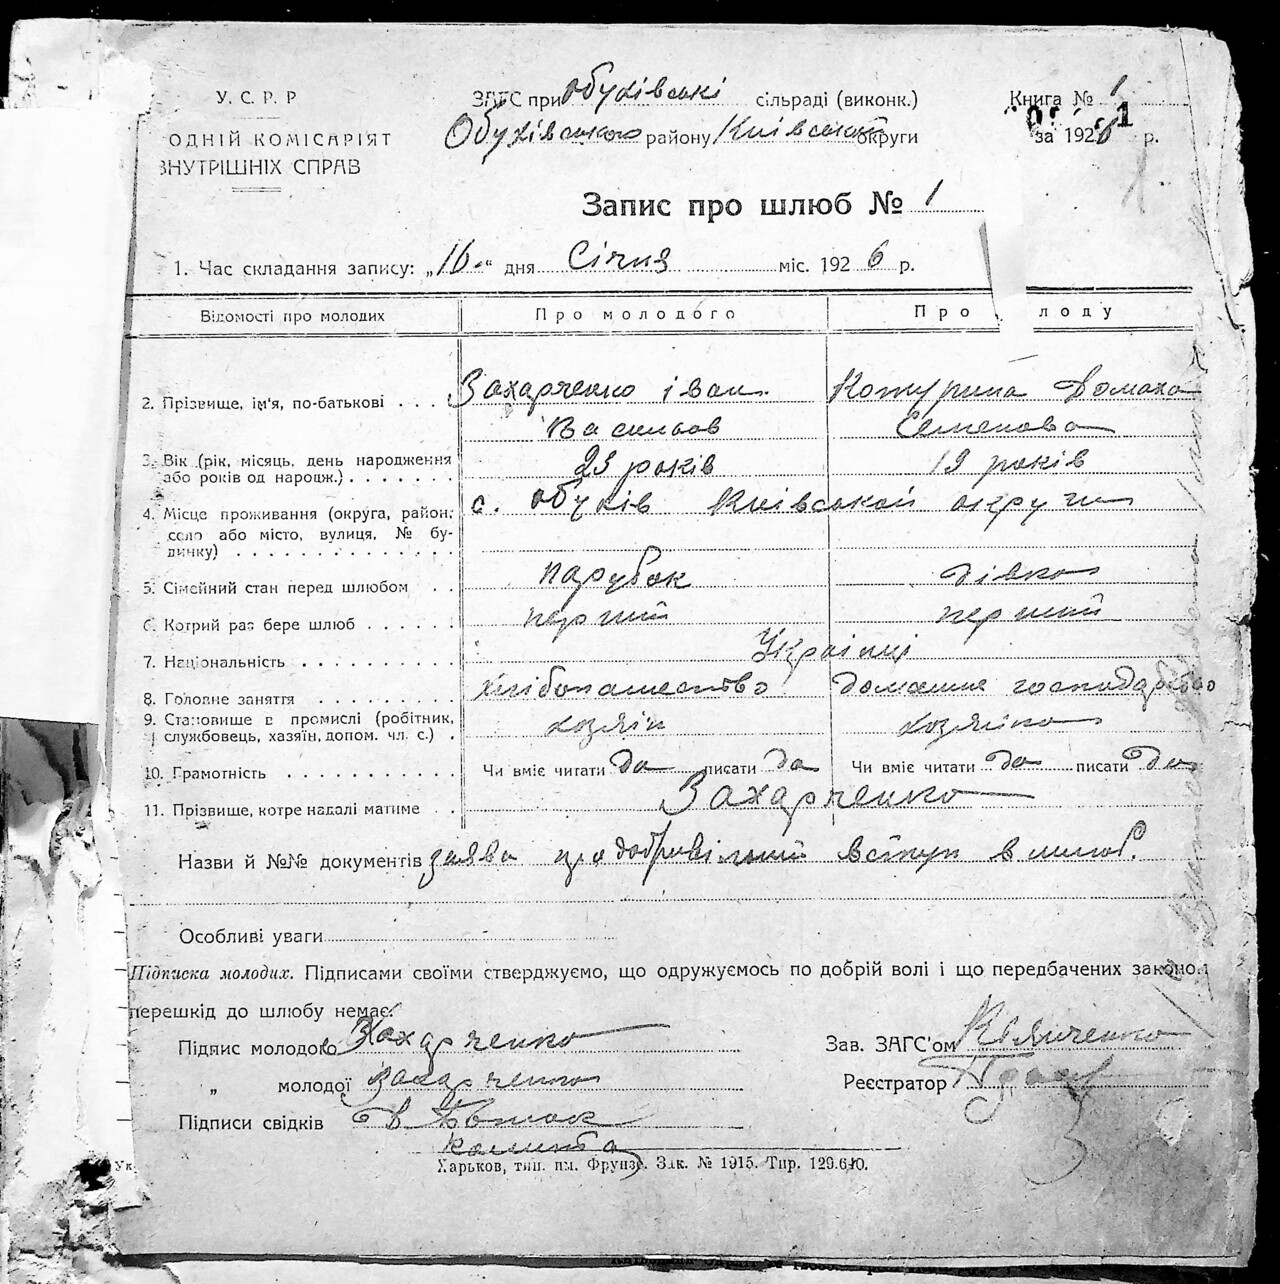 У. С. Р. Р
ОДНІЙ КОМІСАРІЯТ
ВНУТРІШНІХ СПРАВ
ЗАГС при Обухівські сільраді (виконк.)
Обухівського району Київської округи
Книга № 1
за 1926 р.
Запис про шлюб № 1
1. Час складання запису: „16" дня Січня міс. 1926 р.
Відомості про молодих Про молодого Про лоду
2. Прізвище, ім'я, по-батькові . . . Захарченко Іван Домаха
Васильов Семенова
3. Вік (рік, місяць, день народження 23 років 19 років
або років од народж.)
4. Місце проживання (округа, район, с. Обухів Київської округи
село або місто, вулиця, № бу-
динку)
5. Сімейний стан перед шлюбом . . парубок дівка
6. Котрий раз бере шлюб перший перший
7. Національність Українці
8. Головне заняття хлібопашество домашнє господарство
9. Становище в промислі (робітник, хозяїн хозяйка
службовець, хазяїн, допом. чл. с.) .
10. Грамотність Чи вміє читати да писати да Чи вміє читати да писати да
11. Прізвище, котре надалі матиме Захарченко
Назви й №№ документів заява про добровільний вступ в шлюб.
Особливі уваги
Підписка молодих. Підписами своїми стверджуємо, що одружуємось по добрій волі і що передбачених законом
перешкід до шлюбу немає.
Підпис молодого Захарченко
„ молодої Захарченко
Підписи свідків
Зав. ЗАГС'ом
Реєстратор
Харьков, тип. им. Фрунзе. Зак. № 1915. Тир. 129.640.